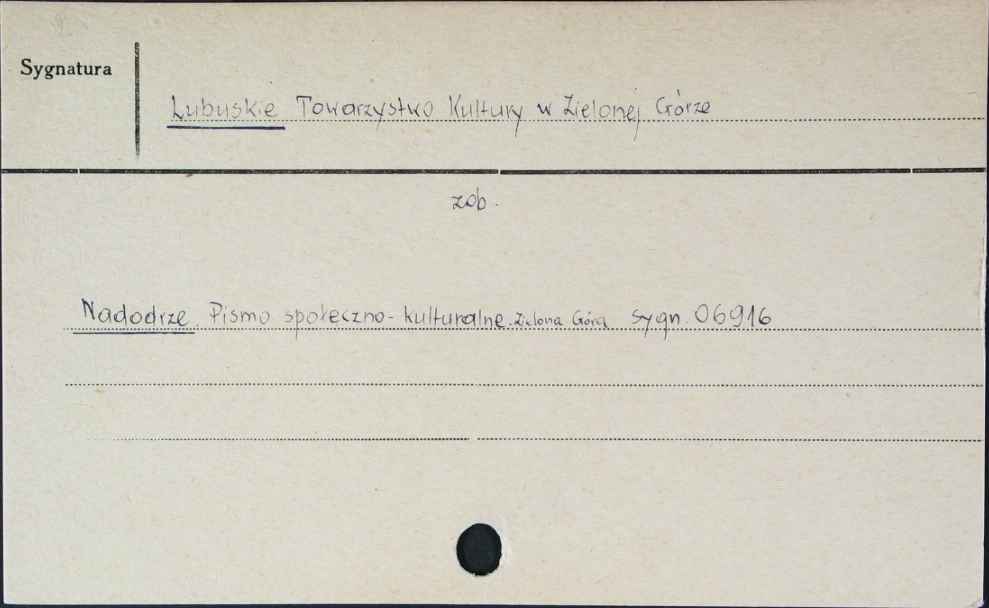 Sygnatura
Lubuskie Towarzystwo Kultury w Zielonej Górze
zob.
Nadodrze. Pismo społeczno-kulturalne. Zielona Góra sygn. 06916